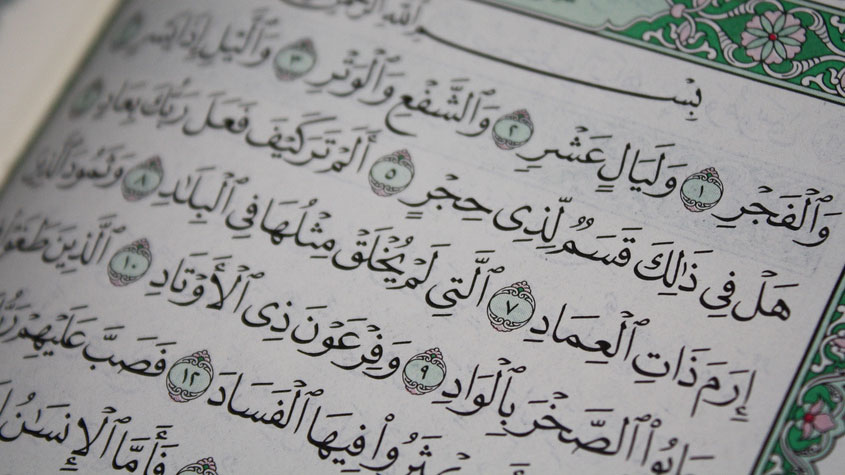 بِسْمِ ٱللَّهِ ٱلرَّحْمَٰنِ
وَٱلْفَجْرِ ١ وَلَيَالٍ عَشْرٍ ٢ وَٱلشَّفْعِ وَٱلْوَتْرِ ٣ وَٱلَّيْلِ إِذَا يَسْرِ ٤
هَلْ فِى ذَٰلِكَ قَسَمٌ لِّذِى حِجْرٍ ٥ أَلَمْ تَرَ كَيْفَ فَعَلَ رَبُّكَ بِعَادٍ ٦
إِرَمَ ذَاتِ ٱلْعِمَادِ ٧ ٱلَّتِى لَمْ يُخْلَقْ مِثْلُهَا فِى ٱلْبِلَٰدِ ٨ وَثَمُودَ ٱلَّذِينَ
جَابُوا۟ ٱلصَّخْرَ بِٱلْوَادِ ٩ وَفِرْعَوْنَ ذِى ٱلْأَوْتَادِ ١٠ ٱلَّذِينَ طَغَوْا۟
فِيهَا ٱلْفَسَادَ ١٢ فَصَبَّ عَلَيْهِمْ
فَأَمَّا ٱلْإِنسَٰنُ